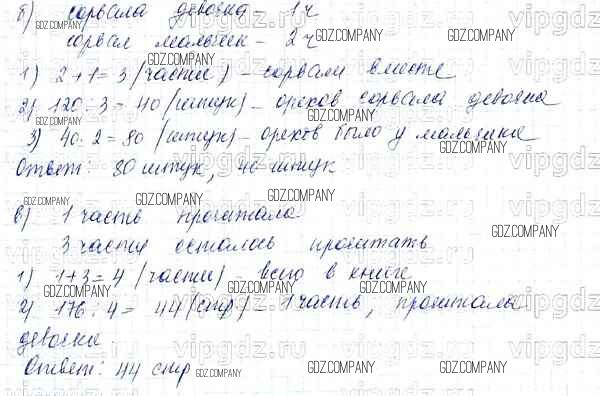 б) сорвала девочка - 1ч
сорвал мальчик - 2ч
1) 2+1=3 (части) - сорвали вместе
2) 120:3=40 (штук) - орехов сорвала девочка
3) 40·2=80 (штук) - орехов было у мальчика
Ответ: 80 штук, 40 штук
в) 1 часть прочитала
3 части осталось прочитать
1) 1+3=4 (части) - всего в книге
2) 176:4= 44 (стр) - 1 часть, прочитала
девочка
Ответ: 44 стр
GDZ.COMPANY
vipgdz.ru